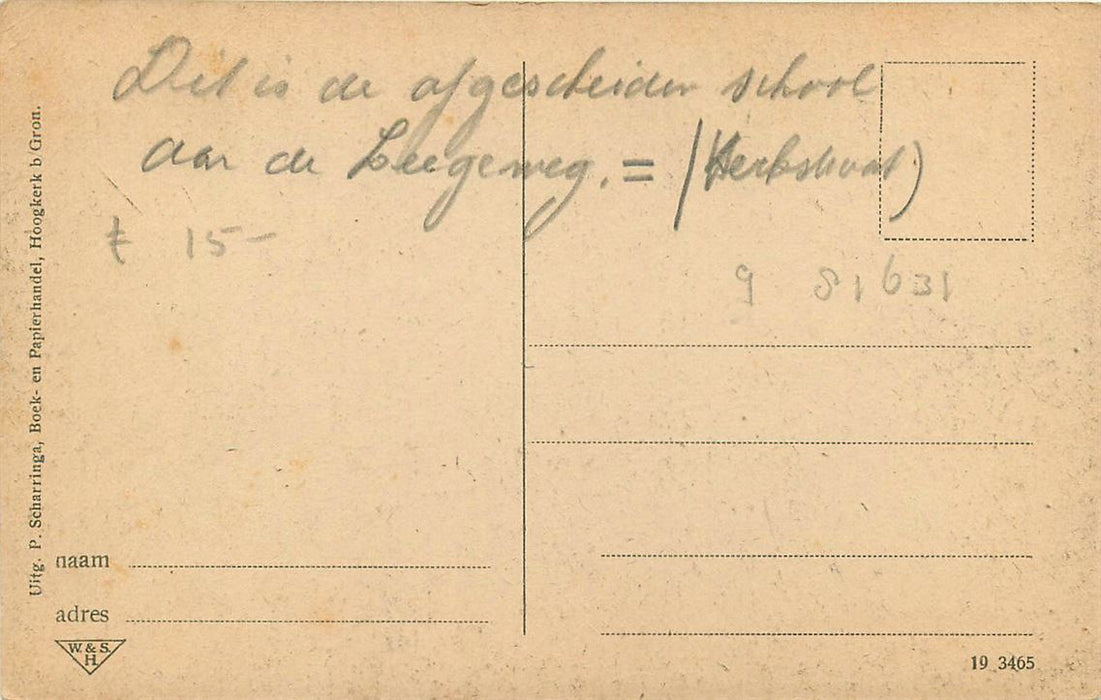 Dit is de afgescheiden school
aan de Leegeweg. = (Kerkstraat)
15-
9 81631
Uitg. P. Scharringa, Boek- en Papierhandel, Hoogkerk b/Gron.
naam
adres
W. & S.
H.
19 3465